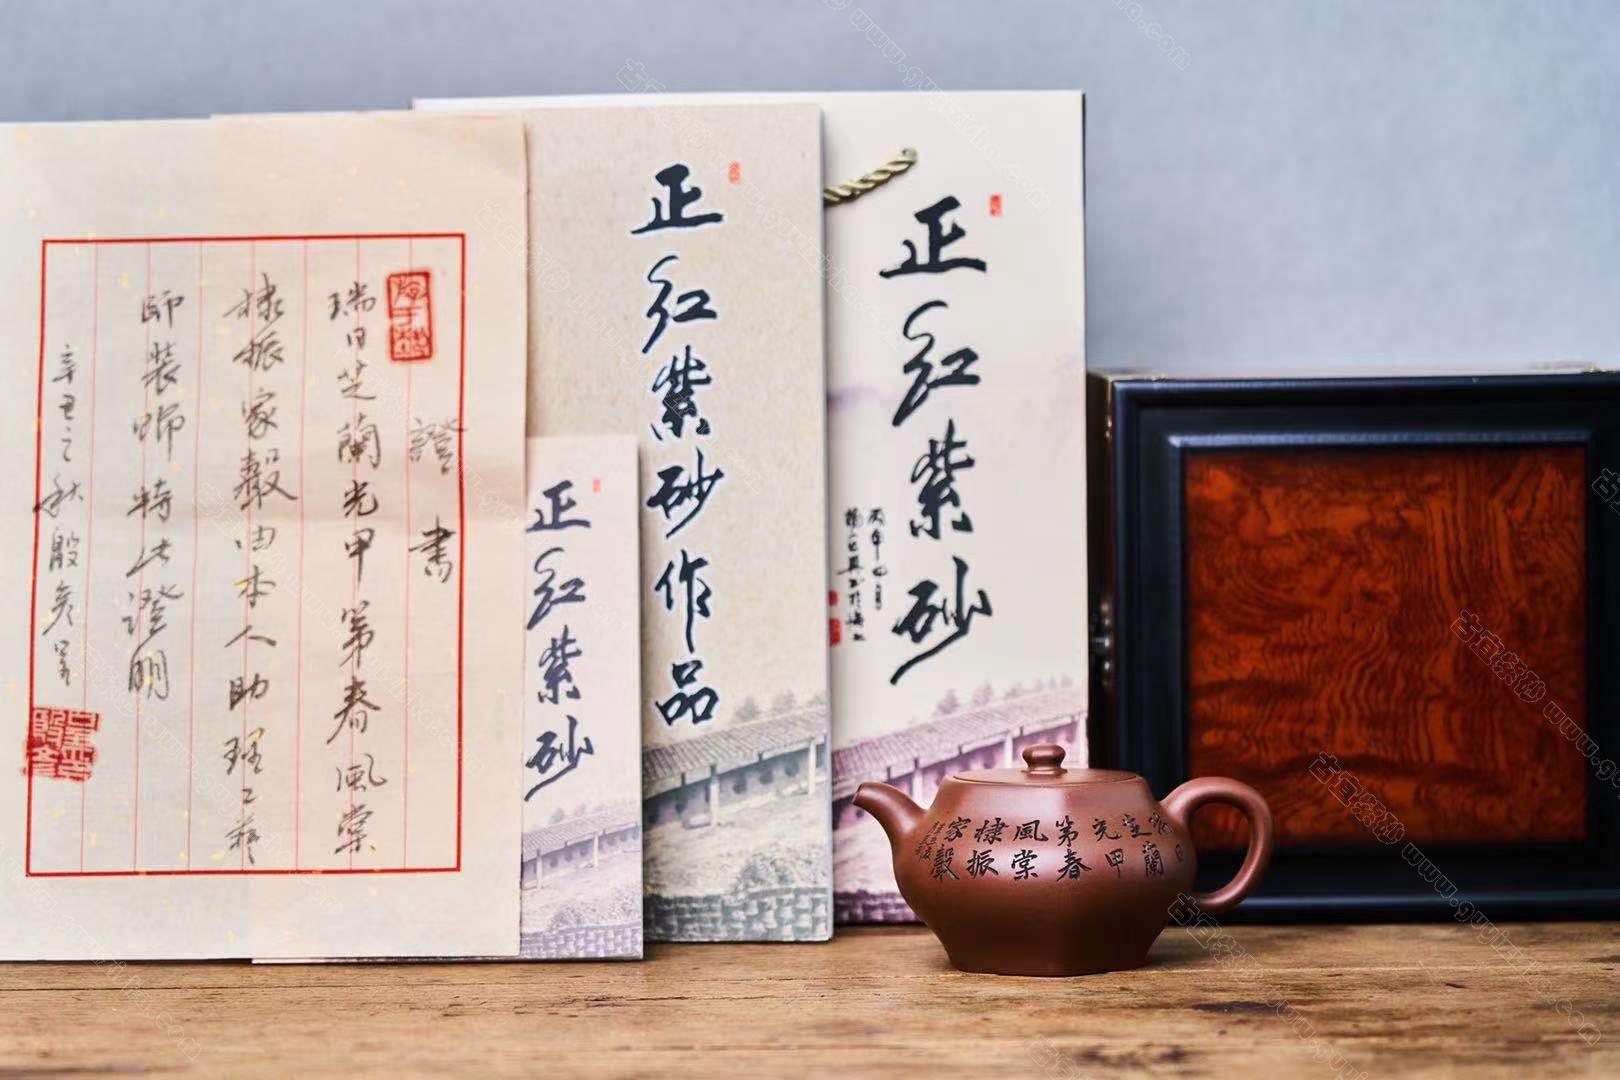 證書
瑞日芝蘭光甲第春風棠
棣振家聲由本人助理工藝
師裝飾特此證明
辛丑之秋殷俊呈
正紅紫砂
正紅紫砂作品
正紅紫砂
家棣風第光芝瑞
聲振棠春甲蘭日